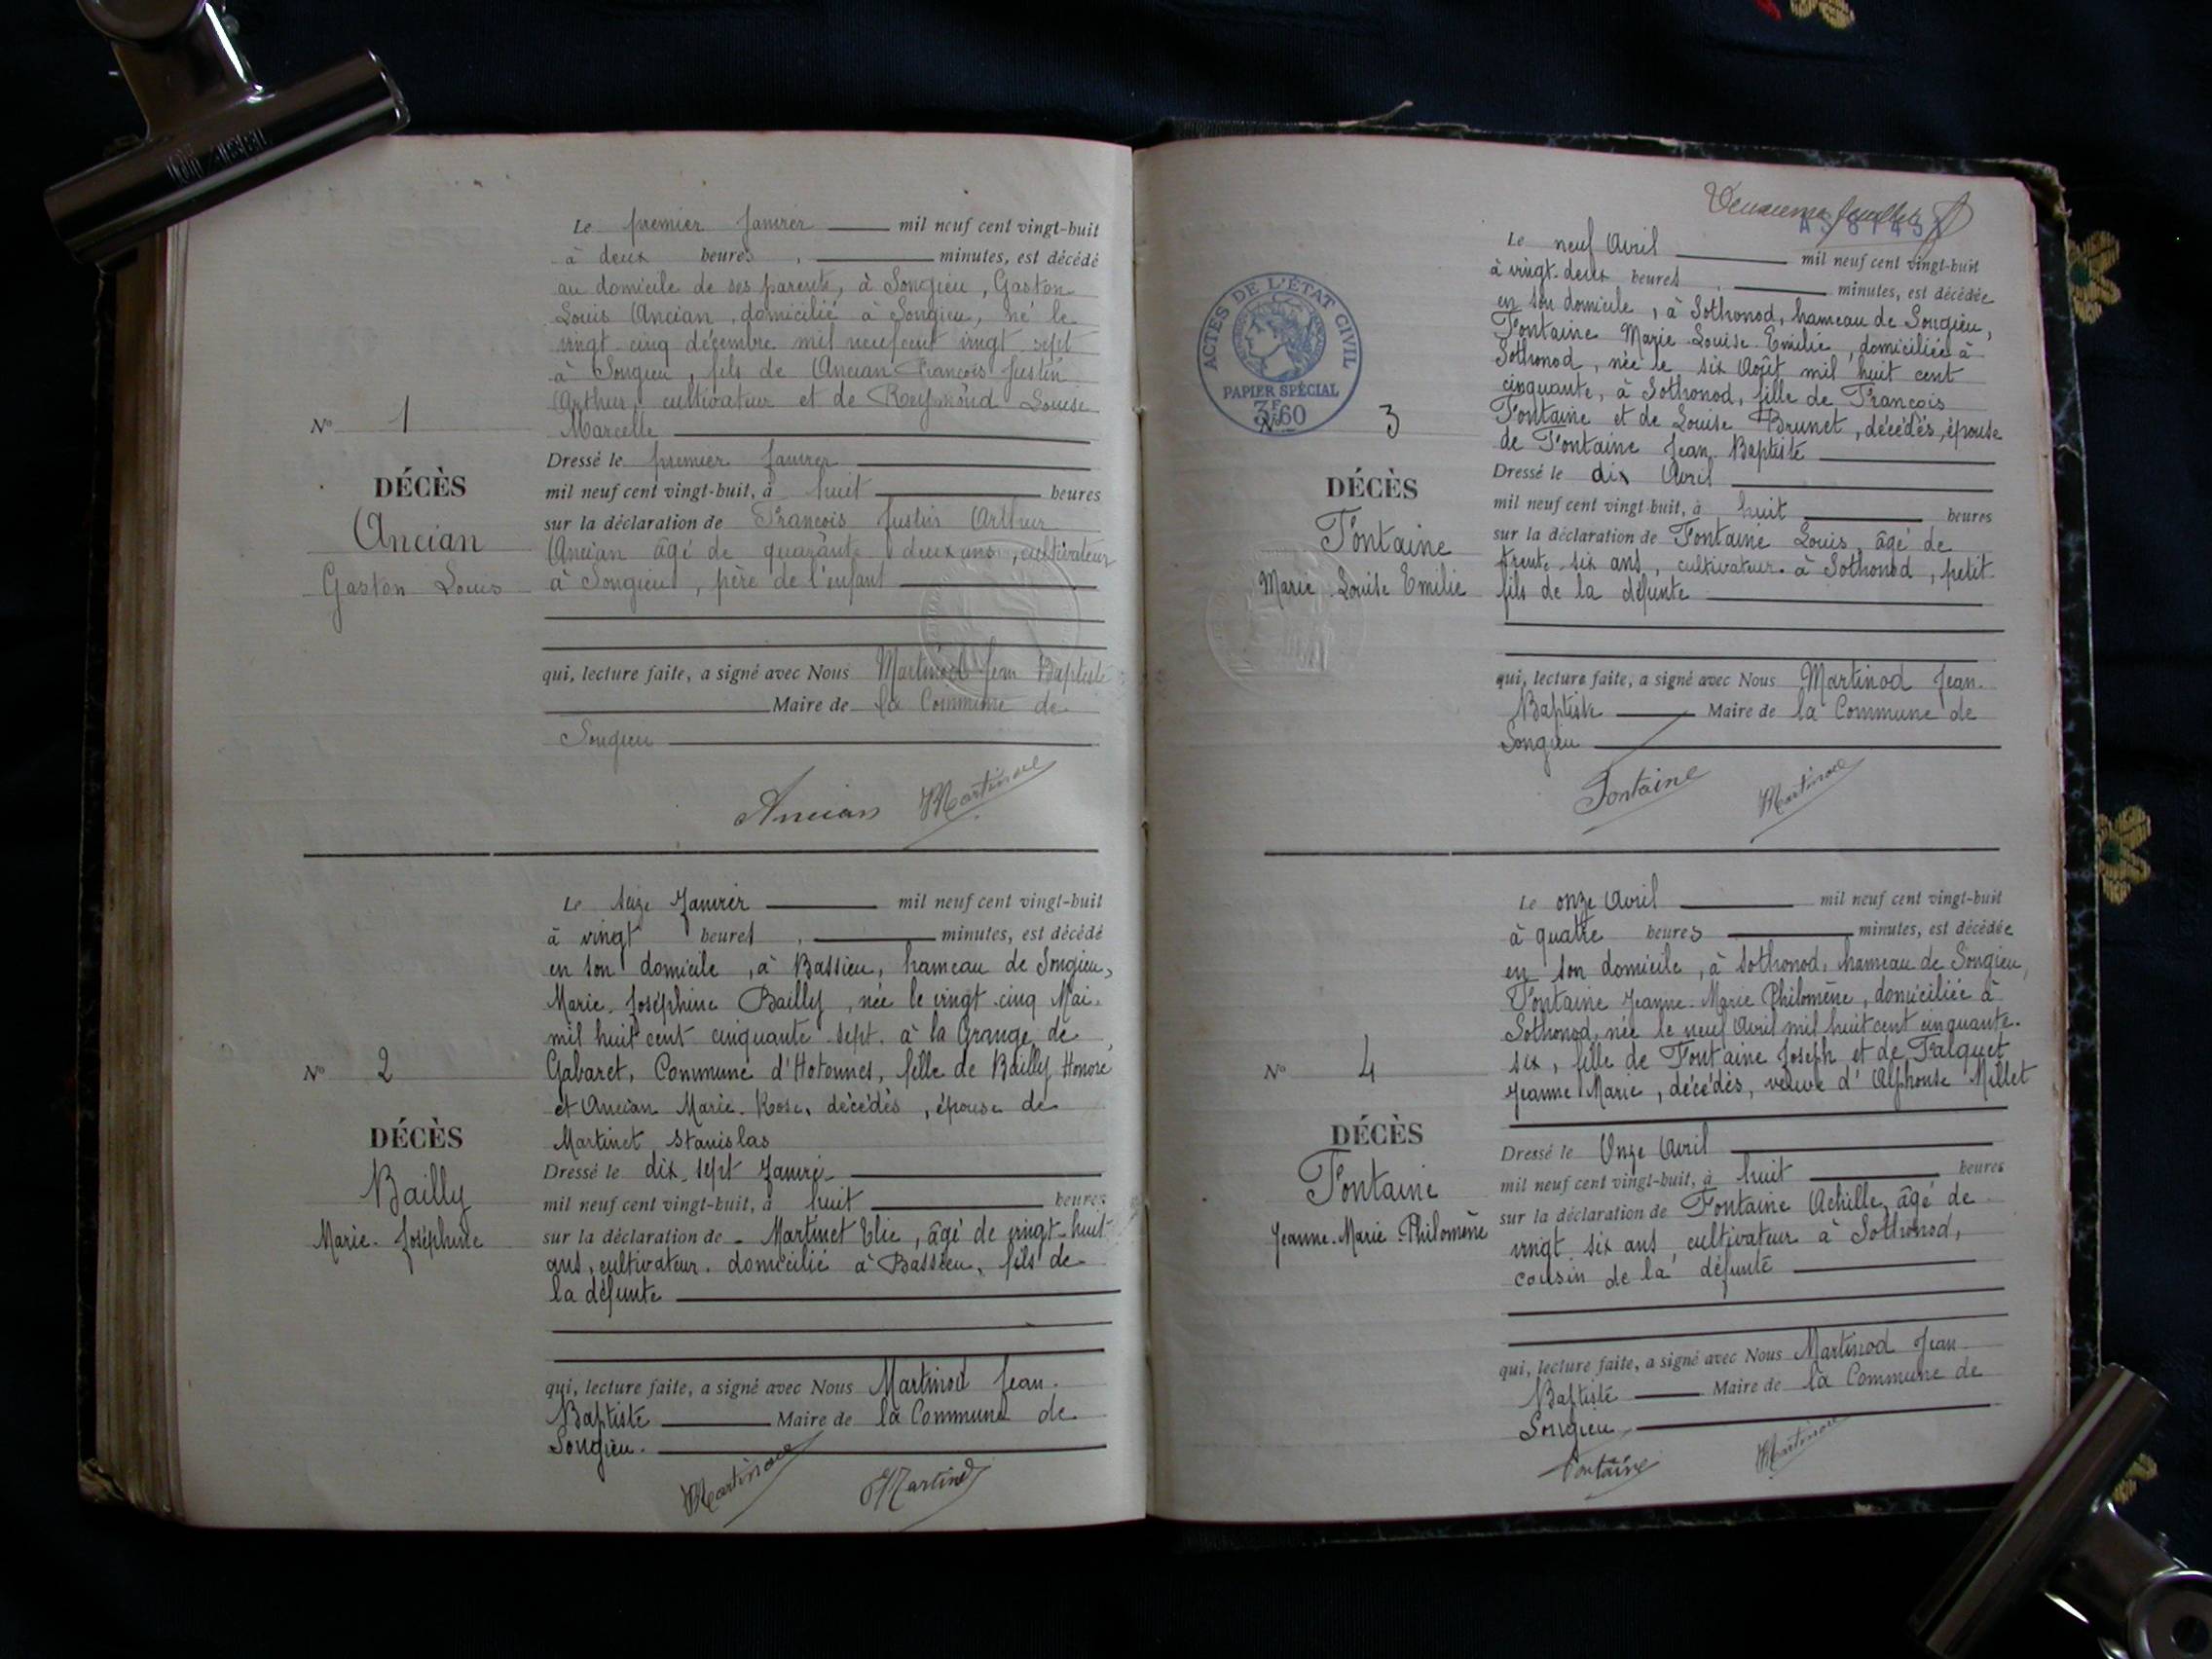 Le premier Janvier mil neuf cent vingt-huit
à deux heures , minutes, est décédé
au domicile de ses parents, à Songieu, Gaston
Louis Ancian, domicilié à Songieu, né le
vingt-cinq décembre mil neuf cent vingt-sept
à Songieu, fils de Ancian François Justin
Arthur, cultivateur et de Reymond Louise
Marcelle
Nº 1
Dressé le premier Janvier
DÉCÈS
mil neuf cent vingt-huit, à huit heures
Ancian
sur la déclaration de François Justin Arthur
Ancian âgé de quarante deux ans, cultivateur
Gaston Louis
à Songieu, père de l'enfant
qui, lecture faite, a signé avec Nous Martinod Jean Baptiste
Maire de la Commune de
Songieu
Ancian Martinod
Le seize Janvier mil neuf cent vingt-huit
à vingt heures , minutes, est décédé
en son domicile, à Bassieu, hameau de Songieu,
Marie-Joséphine Bailly, née le vingt-cinq Mai
mil huit cent cinquante-sept à la Grange de
Nº 2
Gabaret, Commune d'Hotonnes, fille de Bailly Honoré
et Ancian Marie-Rose, décédés, épouse de
DÉCÈS
Martinet Stanislas
Bailly
Dressé le dix-sept Janvier
mil neuf cent vingt-huit, à huit heures
Marie-Joséphine
sur la déclaration de Martinet Elie, âgé de vingt-huit
ans, cultivateur, domicilié à Bassieu, fils de
la défunte
qui, lecture faite, a signé avec Nous Martinod Jean
Baptiste Maire de la Commune de
Songieu.
Martinod Martinet
feuillet
ACTES DE L'ÉTAT CIVIL
PAPIER SPÉCIAL
3F60
Le neuf Avril mil neuf cent vingt-huit
à vingt-deux heures , minutes, est décédée
en son domicile, à Sothonod, hameau de Songieu,
Fontaine Marie-Louise-Emilie, domiciliée à
Sothonod, née le six Août mil huit cent
cinquante, à Sothonod, fille de François
Nº 3
Fontaine et de Louise Brunet, décédés, épouse
de Fontaine Jean-Baptiste
DÉCÈS
Dressé le dix Avril
mil neuf cent vingt-huit, à huit heures
Fontaine
sur la déclaration de Fontaine Louis, âgé de
trente-six ans, cultivateur à Sothonod, petit
Marie-Louise Emilie
fils de la défunte
qui, lecture faite, a signé avec Nous Martinod Jean-
Baptiste Maire de la Commune de
Songieu
Fontaine Martinod
Le onze Avril mil neuf cent vingt-huit
à quatre heures minutes, est décédée
en son domicile, à Sothonod, hameau de Songieu,
Fontaine Jeanne-Marie Philomène, domiciliée à
Sothonod, née le neuf Avril mil huit cent cinquante-
six, fille de Fontaine Joseph et de Falquet
Nº 4
Jeanne Marie, décédés, veuve d'Alphonse Millet
DÉCÈS
Dressé le Onze Avril
Fontaine
mil neuf cent vingt-huit, à huit heures
sur la déclaration de Fontaine Achille, âgé de
Jeanne-Marie-Philomène
vingt-six ans, cultivateur à Sothonod,
cousin de la défunte
qui, lecture faite, a signé avec Nous Martinod Jean
Baptiste Maire de la Commune de
Songieu
Fontaine Martinod